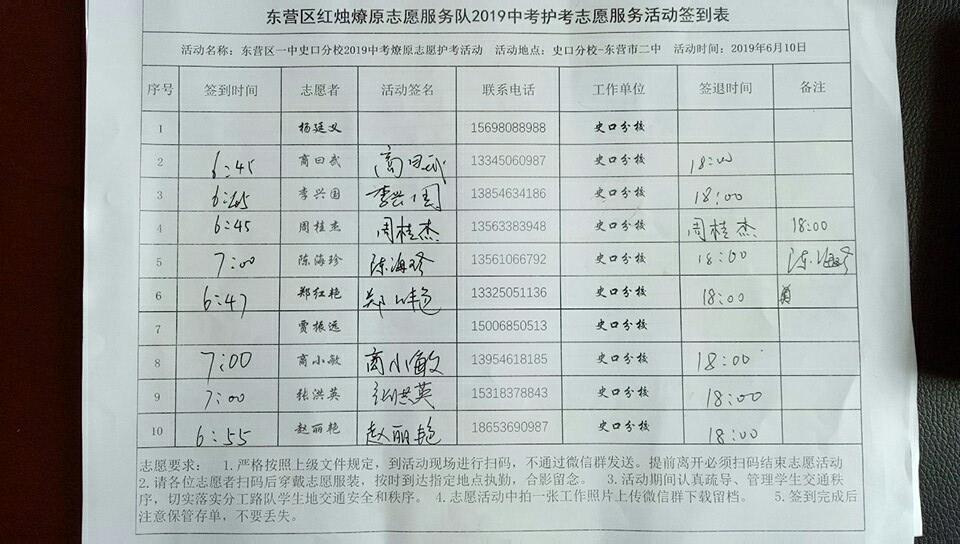 东营区红烛燎原志愿服务队2019中考护考志愿服务活动签到表
活动名称：东营区一中史口分校2019中考燎原志愿护考活动 活动地点：史口分校-东营市二中 活动时间：2019年6月10日
序号 签到时间 志愿者 活动签名 联系电话 工作单位 签退时间 备注
1 杨廷义 15698088988 史口分校
2 6:45 商曰武 商曰武 13345060987 史口分校 18:00
3 6:45 李兴国 李兴国 13854634186 史口分校 18:00
4 6:45 周桂杰 周桂杰 13563383948 史口分校 周桂杰 18:00
5 7:00 陈海珍 陈海珍 13561066792 史口分校 18:00 陈海珍
6 6:47 郑红艳 郑红艳 13325051136 史口分校 18:00
7 贾振远 15006850513 史口分校
8 7:00 商小敏 商小敏 13954618185 史口分校 18:00
9 7:00 张洪英 张洪英 15318378843 史口分校 18:00
10 6:55 赵丽艳 赵丽艳 18653690987 史口分校 18:00
志愿要求： 1.严格按照上级文件规定，到活动现场进行扫码，不通过微信群发送。提前离开必须扫码结束志愿活动
2.请各位志愿者扫码后穿戴志愿服装，按时到达指定地点执勤，合影留念。 3.活动期间认真疏导、管理学生交通秩
序，切实落实分工路队学生地交通安全和秩序。 4.志愿活动中拍一张工作照片上传微信群下载留档。 5.签到完成后
注意保管存单，不要丢失。